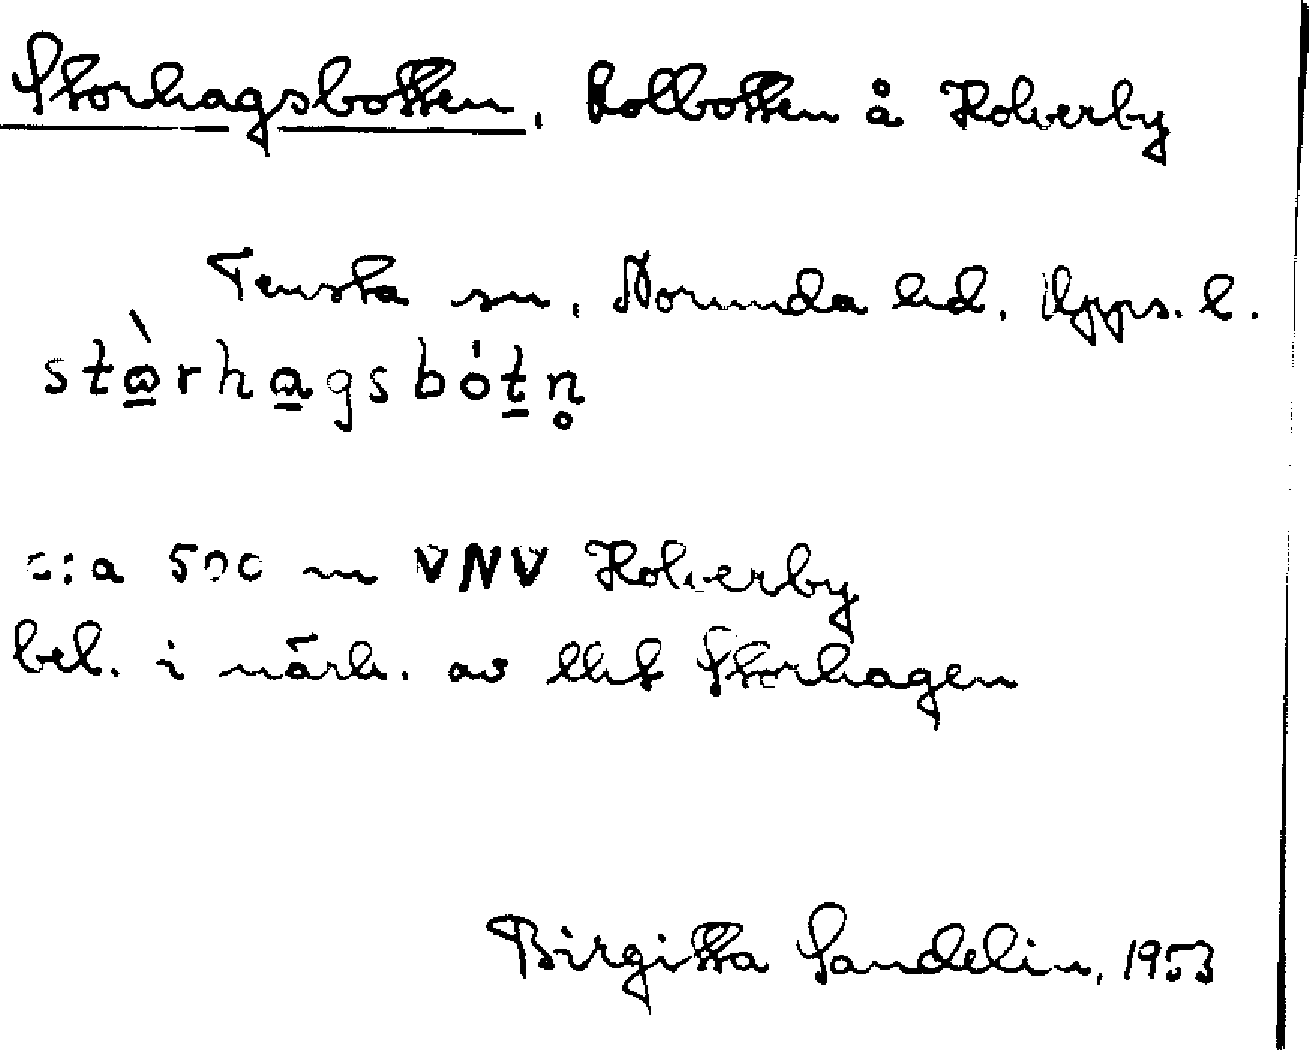 Storhagsbotten, Kolbotten å Kolverby
Tensta sn, Norunda hd, Upps. l.
stὼ̱rha̱gsbót̠n̥
c:a 500 m VNV Kolverby
bel. i närh. av Ehf Storhagen
Birgitta Sandelin, 1953